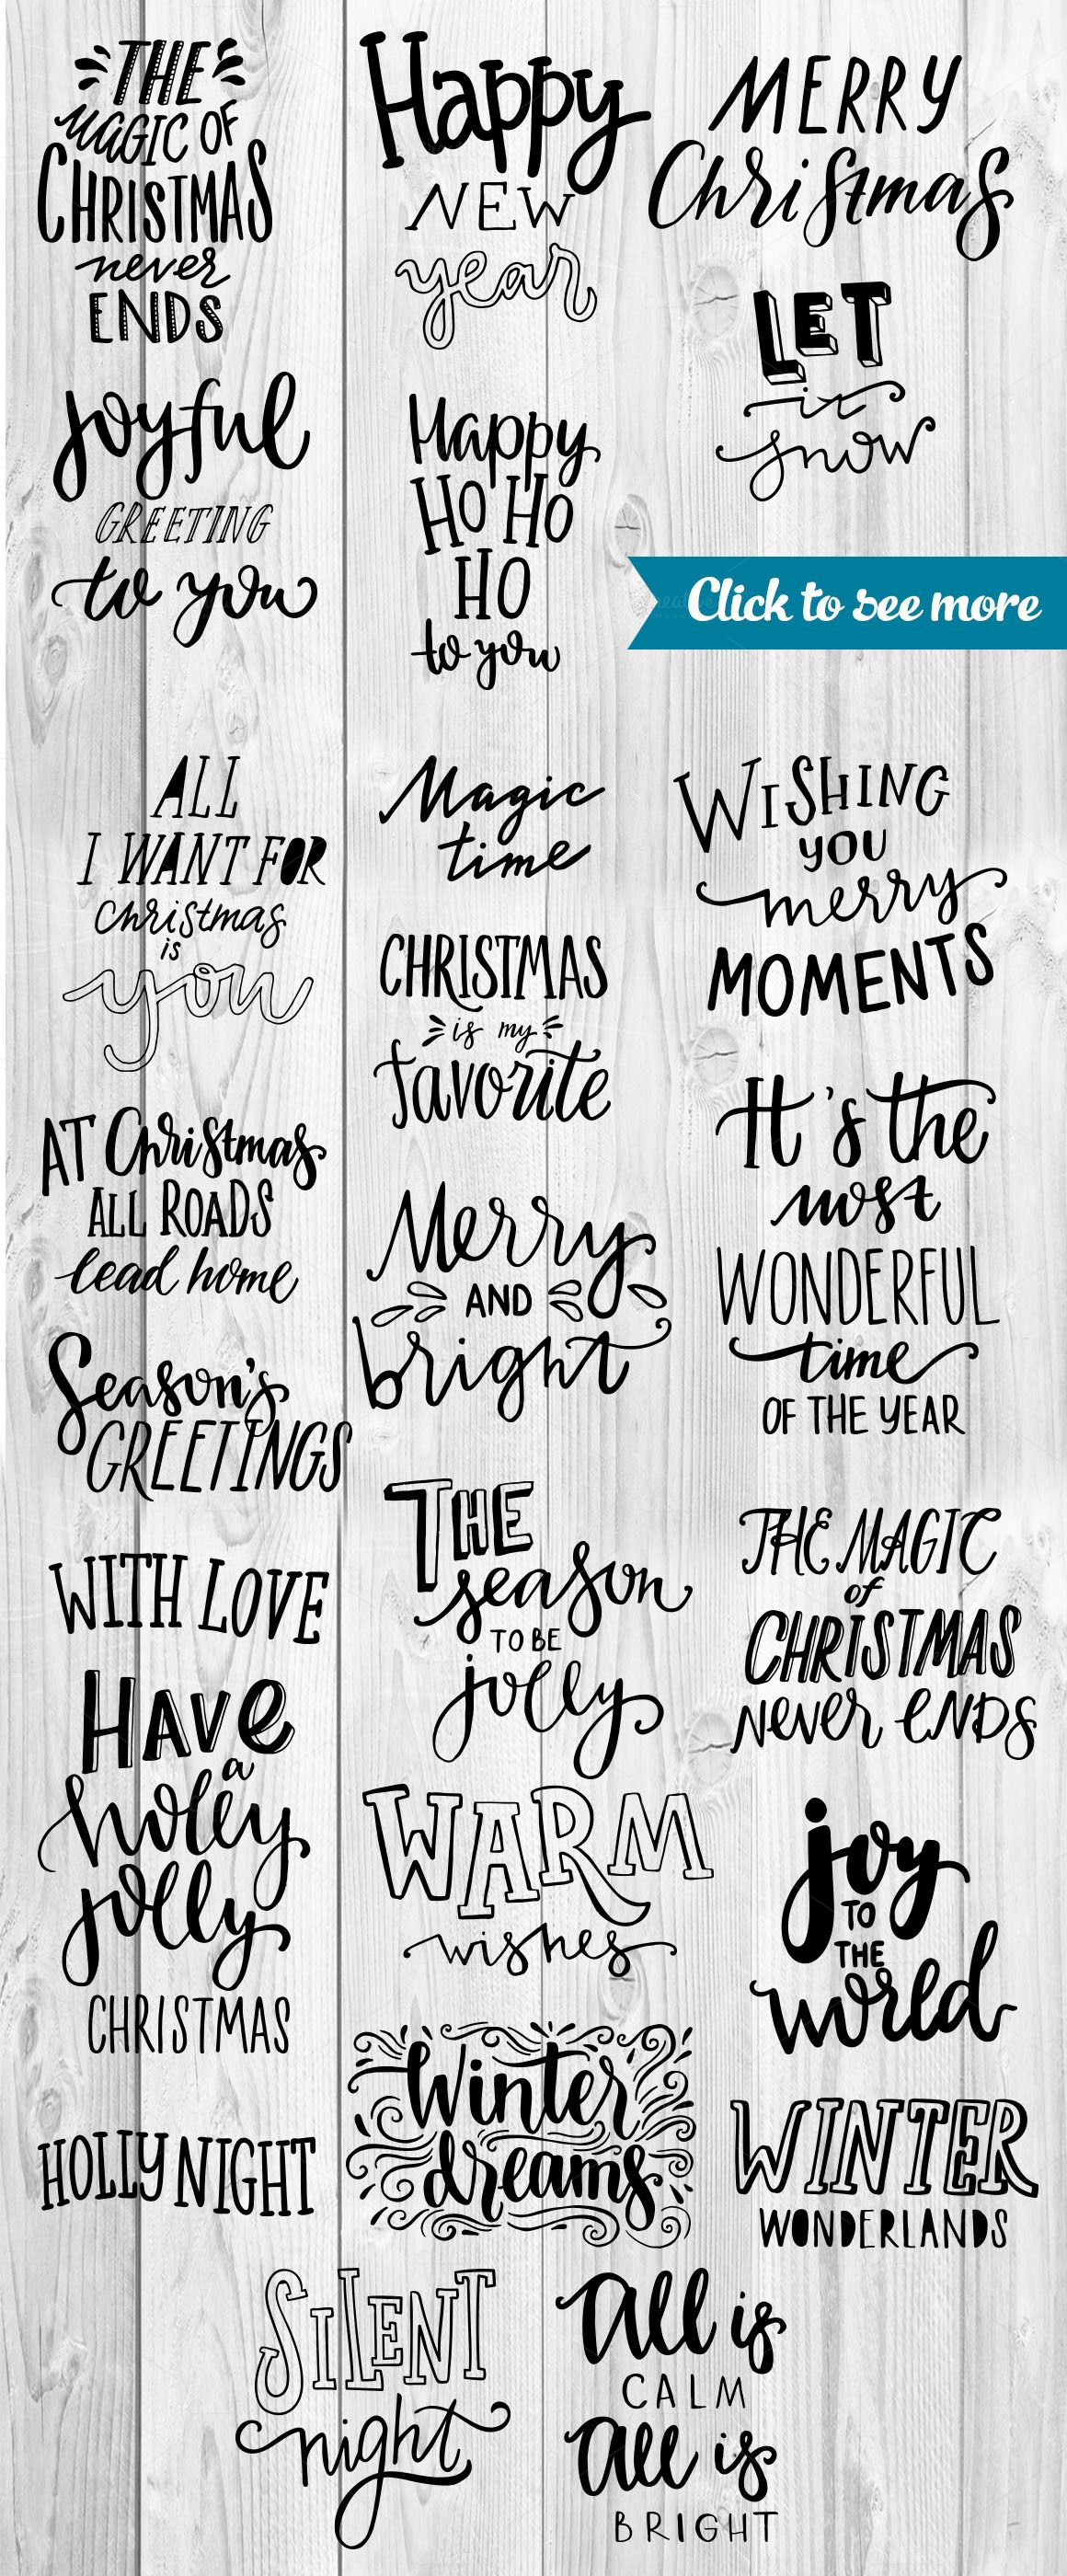 THE
MAGIC OF
CHRISTMAS
never
ENDS
Happy
NEW
year
MERRY
Christmas
LET
it
snow
joyful
GREETING
to you
Happy
HO HO
HO
to you
Click to see more
ALL
I WANT FOR
Christmas
is
you
Magic
time
WISHING
YOU
merry
MOMENTS
CHRISTMAS
is my
favorite
AT Christmas
ALL ROADS
lead home
It's the
most
WONDERFUL
time
OF THE YEAR
Merry
AND
bright
Season's
GREETINGS
THE
season
TO BE
jolly
THE MAGIC
of
CHRISTMAS
NEVER ENDS
WITH LOVE
HAVE
a
holly
jolly
CHRISTMAS
WARM
wishes
joy
TO
THE
world
HOLLY NIGHT
Winter
dreams
WINTER
WONDERLANDS
SILENT
night
All is
CALM
All is
BRIGHT